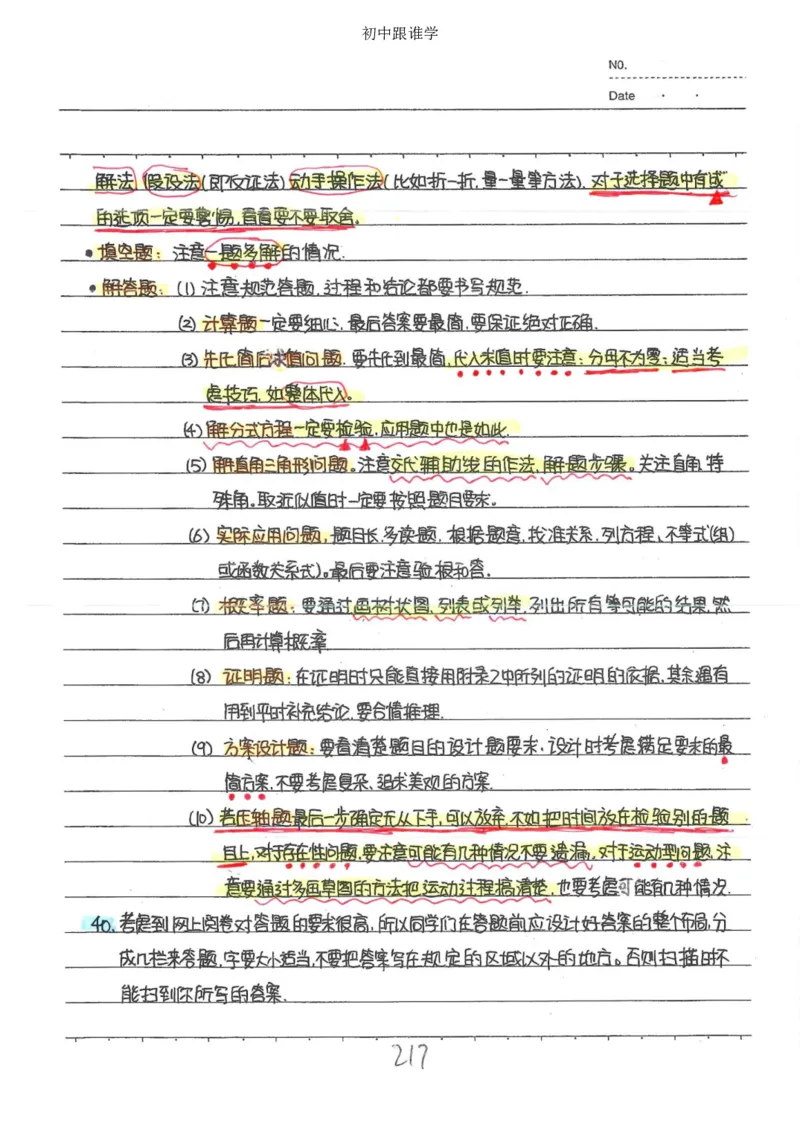 初中跟谁学
NO.
Date
解法,假设法(即反证法)动手操作法(比如折一折,量一量等方法),对于选择题中有“或”
的选项一定要警惕,看看要不要取舍。
•填空题:注意一题多解的情况.
•解答题:(1)注意规范答题,过程和结论都要书写规范.
(2)计算题一定要细心,最后答案要最简,要保证绝对正确.
(3)先化简后求值问题,要先化到最简,代入求值时要注意:分母不为零;适当考
虑技巧,如整体代入。
(4)解分式方程一定要检验,应用题中也是如此.
(5)解直角三角形问题。注意交代辅助线的作法,解题步骤。关注直角,特
殊角。取近似值时一定要按照题目要求。
(6)实际应用问题,题目长,多读题,根据题意,找准关系,列方程、不等式(组)
或函数关系式)。最后要注意验根和答.
(7)概率题:要通过画树状图,列表或列举,列出所有等可能的结果,然
后再计算概率
(8)证明题:在证明时只能直接用附录2中所列的证明的依据,其余遇有
用到平时补充结论,要合情推理.
(9)方案设计题:要看清楚题目的设计题要求,设计时考虑满足要求的最
简方案,不要考虑复杂、追求美观的方案.
(10)若压轴题最后一步确定无从下手,可以放弃,不如把时间放在检验别的题
目上,对于存在性问题,要注意可能有几种情况不要遗漏,对于运动型问题,注
意要通过多画草图的方法把运动过程搞清楚,也要考虑可能有几种情况.
40.考虑到网上阅卷对答题的要求很高,所以同学们在答题前应设计好答案的整个布局,分
成几栏来答题,字要大小适当,不要把答案写在规定的区域以外的地方。否则扫描时不
能扫到你所写的答案.
217